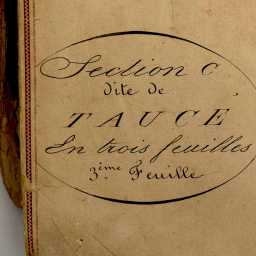 Section C
dite de
TAUCÉ
En trois feuilles
3ème Feuille